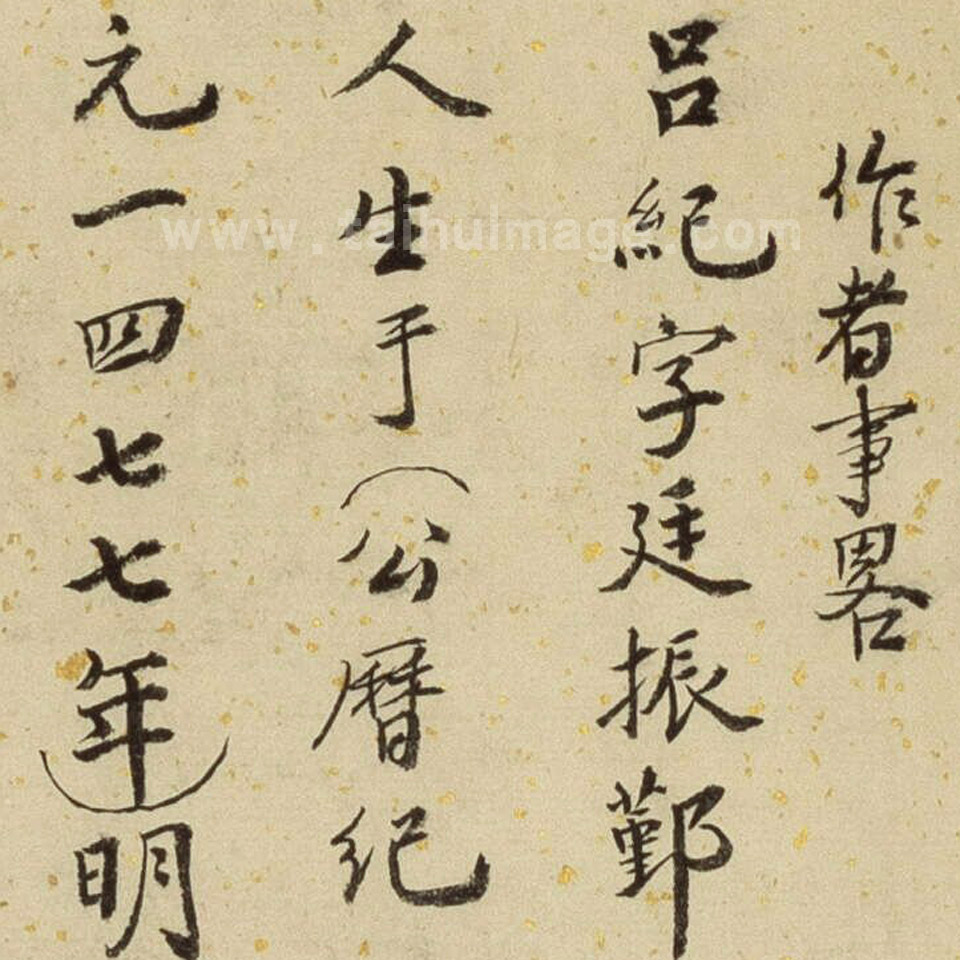 作者事畧
吕紀字廷振鄞
人生于（公曆纪
元一四七七年）明
www.taihuimage.com